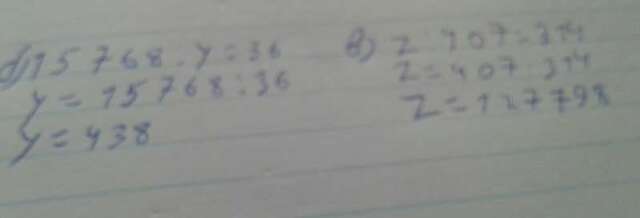 б) 15768 : y = 36
y = 15768 : 36
y = 438
в) z : 407 = 314
z = 407 · 314
z = 127798